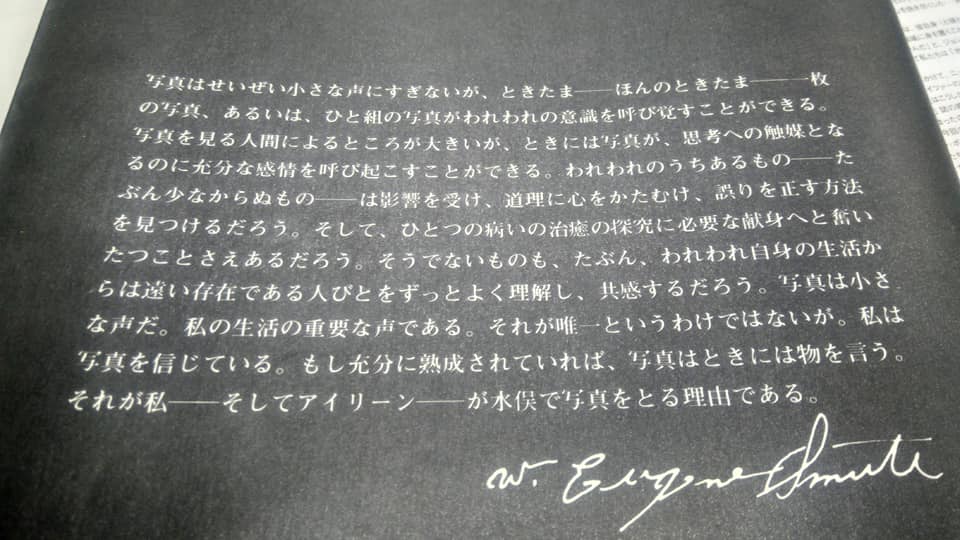 写真はせいぜい小さな声にすぎないが、ときたま――ほんのときたま――一枚
の写真、あるいは、ひと組の写真がわれわれの意識を呼び覚すことができる。
写真を見る人間によるところが大きいが、ときには写真が、思考への触媒とな
るのに充分な感情を呼び起こすことができる。われわれのうちあるもの――た
ぶん少なからぬもの――は影響を受け、道理に心をかたむけ、誤りを正す方法
を見つけるだろう。そして、ひとつの病いの治癒の探究に必要な献身へと奮い
たつことさえあるだろう。そうでないものも、たぶん、われわれ自身の生活か
らは遠い存在である人びとをずっとよく理解し、共感するだろう。写真は小さ
な声だ。私の生活の重要な声である。それが唯一というわけではないが。私は
写真を信じている。もし充分に熟成されていれば、写真はときには物を言う。
それが私――そしてアイリーン――が水俣で写真をとる理由である。
W. Eugene Smith